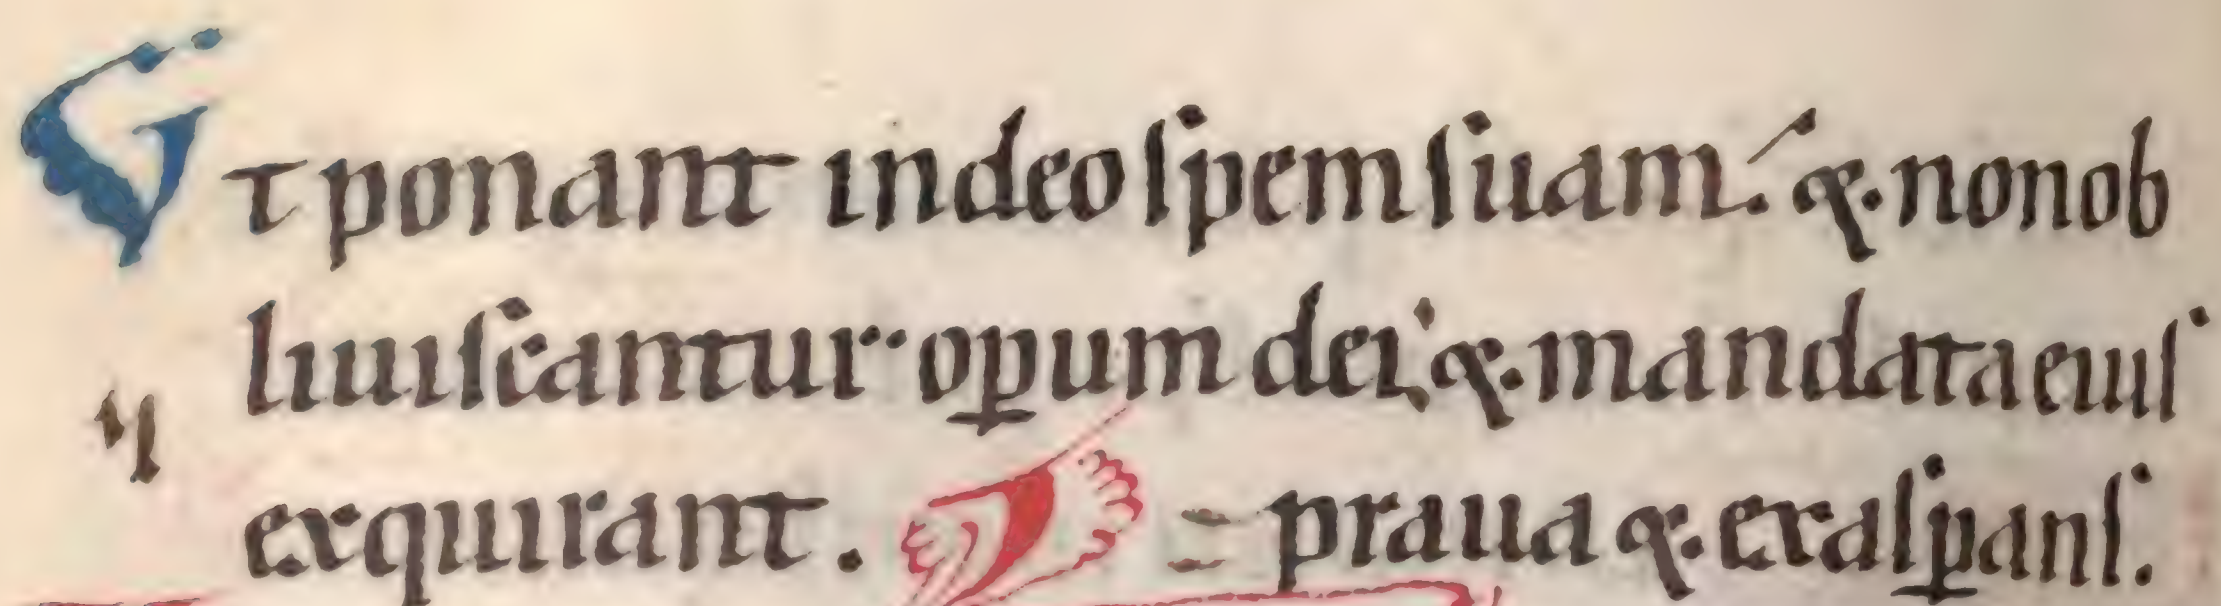 Ut ponant in deo ſpem ſuam. & non ob
liuiſcantur oꝑum dei & mandata eiuſ
exquirant. = praua & exaſꝑanſ.